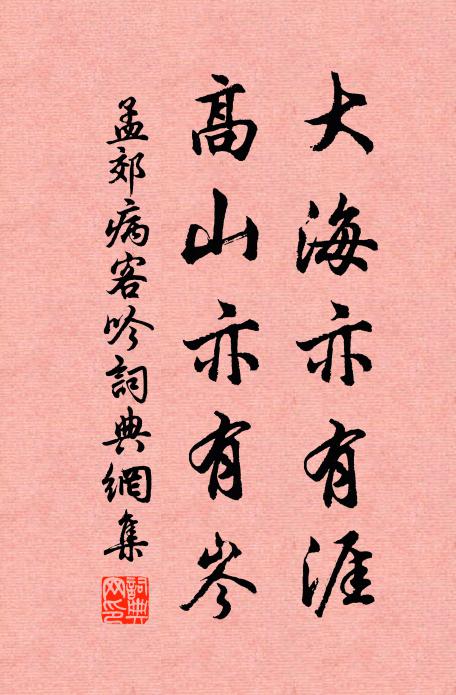 大海亦有涯
高山亦有岑
孟郊病客吟詞典網集
詞典网印